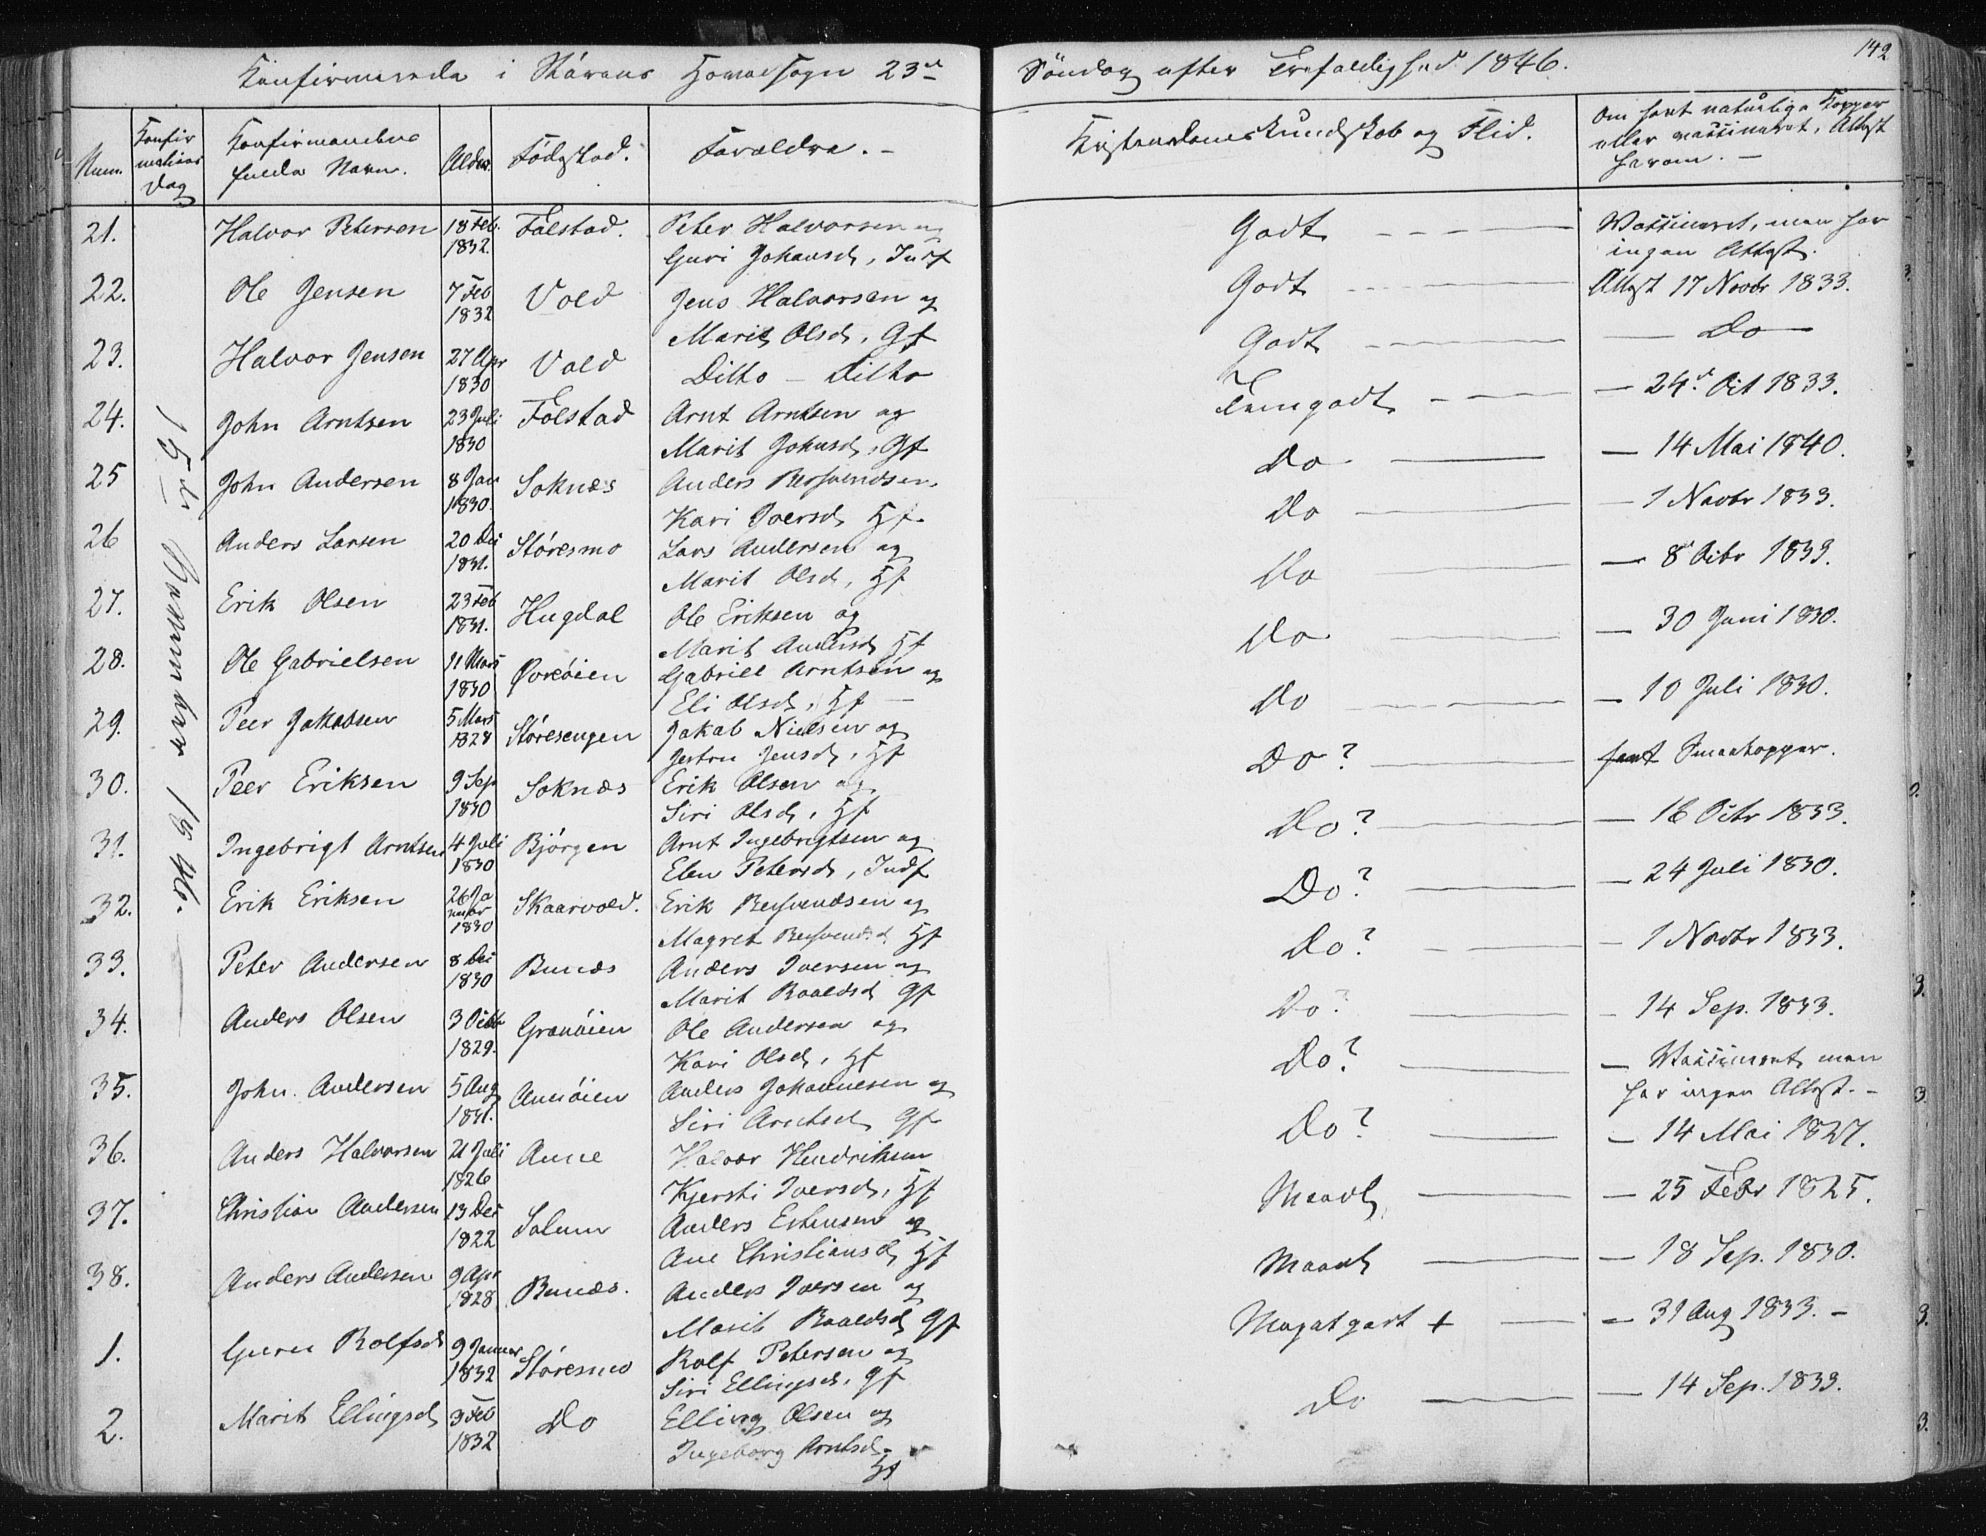 Konfirmerede i Størens Hovedsogn 23de Søndag efter Trefoldighed 1846.
142
Num.
Konfirmations Dag
Konfirmandens fulde Navn.
Alder.
Fødested.
Forældre. –
Kristendomskundskab og Flid.
Om havt naturlige Kopper eller vassineret, Attest herom. –
15de November 1846.
21. Halvor Petersen 18 Feb. 1832. Folstad. Peter Halvorsen og Godt Vassineret, men har
Guri Johansd, Indf ingen Attest.
22. Ole Jensen 7 Feb 1832 Vold Jens Halvorsen og Godt Attest 17 Novbr 1833.
Marit Olsd, Gf
23. Halvor Jensen 27 Apr 1830 Vold Ditto – Ditto Godt — Do —
24. John Arntsen 23 Juli 1830 Folstad Arnt Arntsen og Temgodt — 24de Oct 1833.
Marit Johnsd, Gf
25 John Andersen 8 Jan 1830. Soknæs Anders Bersvendsen Do — 14 Mai 1840.
Kari Iversd Hf.
26 Anders Larsen 20 Dec 1831. Støresmo Lars Andersen og Do — 1 Novbr 1833.
Marit Olsd, Hf
27. Erik Olsen 23 Feb 1831. Hugdal Ole Eriksen og Do — 8de Octbr 1833.
Marit Andersd Hf
28. Ole Gabrielsen 11 Mars 1830 Gabriel Arntsen og Do — 30 Juni 1830.
Eli Olsd, Hf —
29. Peer Jakobsen 5 Mars 1828 Støresengen Jakob Nielsen og Do — 10 Juli 1830.
Jensd, Hf
30. Peer Eriksen 9 Sep 1830 Soknæs Erik Olsen og Do? havt Smaakopper.
Siri Olsd, Hf
31. Ingebrigt Arntsen 4 Juli 1830 Bjørgen Arnt Ingebrigtsen og Do? — 16 Octbr 1833.
Elen Petersd, Indf
32. Erik Eriksen 26 Januar 1830 Skaarvold. Erik Bersvendsen og Do? — 24 Juli 1830.
Magret Bersvendsd Hf
33. Peter Andersen 8 Dec 1830 Bunæs Anders Iversen og Do? — 1 Novbr 1833.
Marit Roaldsd Gf
34. Anders Olsen 3 Octbr 1829. Granøien Ole Andersen og Do? — 14 Sep. 1833.
Kari Olsd, Hf
35. John Andersen 5 Aug 1831. Aneøien Anders Johannesen og Do? — Vassineret men
Siri Arntsd Gf har ingen Attest. –
36. Anders Halvorsen 21 Juli 1826 Aune Halvor Hendriksen Do? — 14 Mai 1827.
Kjersti Iversd, Hf
37. Christian Andersen 13 Dec 1822 Solem Anders Estensen og Maadl — 25 Febr 1825.
Ane Christiansd Hf
38. Anders Andersen 9 Apr 1828 Bunæs. Anders Iversen og Maadl — 18 Sep. 1830.
Marit Roaldsd Gf
1. Guru Rolfsd 9 Januar 1832 Støresmo Rolf Petersen og Megetgodt + — 31 Aug 1833. –
Siri Ellingsd, Gf
2. Marit Ellingsd 3 Feb 1832 Do Elling Olsen og Do — 14 Sep. 1833.
Ingeborg Arntsd Hf